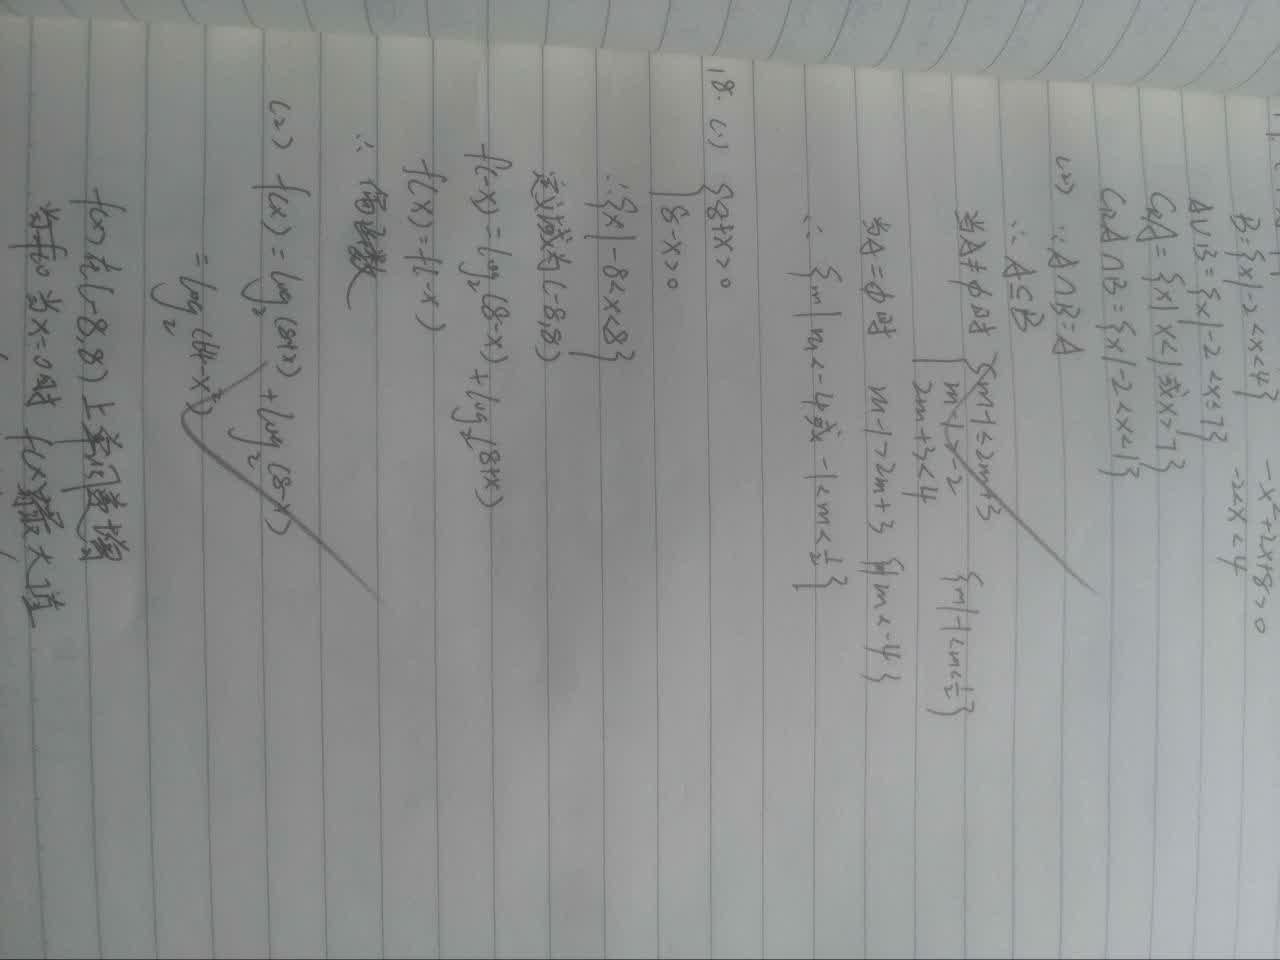 B={x|-2<x<4}
-x²+2x+8>0
-2<x<4
A∪B={x|-2<x≤7}
C_RA={x|x<1或x>7}
C_RA∩B={x|-2<x<1}
(2) ∵A∩B=A
∴A⊆B
当A≠φ时 {m-1≤2m+3
m-1>-2
2m+3<4
{m|-1<m<1/2}
当A=φ时 m-1>2m+3 {m|m<-4}
∴{m|m<-4或-1<m<1/2}
18. (1) {8+x>0
8-x>0
∴{x|-8<x<8}
定义域为(-8,8)
f(-x)=log₂(8-x)+log₂(8+x)
f(x)=f(-x)
∴偶函数
(2) f(x)=log₂(8+x)+log₂(8-x)
=log₂(64-x²)
f(x)在(-8,8)上
当x=0时 f(x)最大值